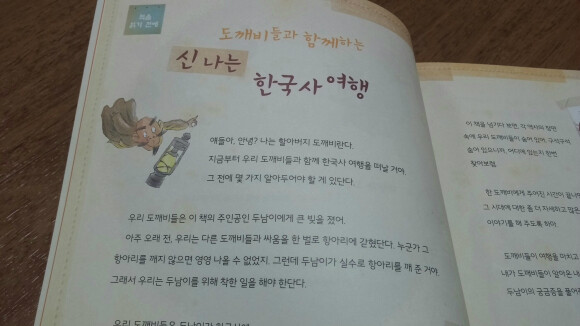 책을
읽기 전에
도깨비들과 함께하는
신 나는
한국사 여행
얘들아, 안녕? 나는 할아버지 도깨비란다.
지금부터 우리 도깨비들과 함께 한국사 여행을 떠날 거야.
그 전에 몇 가지 알아두어야 할 게 있단다.
우리 도깨비들은 이 책의 주인공인 두남이에게 큰 빚을 졌어.
아주 오래 전, 우리는 다른 도깨비들과 싸움을 한 벌로 항아리에 갇혔단다. 누군가 그
항아리를 깨지 않으면 영영 나올 수 없었지. 그런데 두남이가 실수로 항아리를 깨 준 거야.
그래서 우리는 두남이를 위해 착한 일을 해야 한단다.
우리 도깨비들은 두남이가 한국사에
이 책을 넘기다 보면, 각 역사의 장면
속에 우리 도깨비들이 숨어 있어. 구석구석
숨어 있으니까, 어디에 있는지 한번
찾아보렴.
한 도깨비에게 주어진 시간이 끝나
그 시대에 대한 좀 더 자세하고 많은
이야기를 해 주도록 하마.
도깨비들이 여행을 마치고
내가 도깨비들이 담아온 내
두남이의 궁금증을 풀어